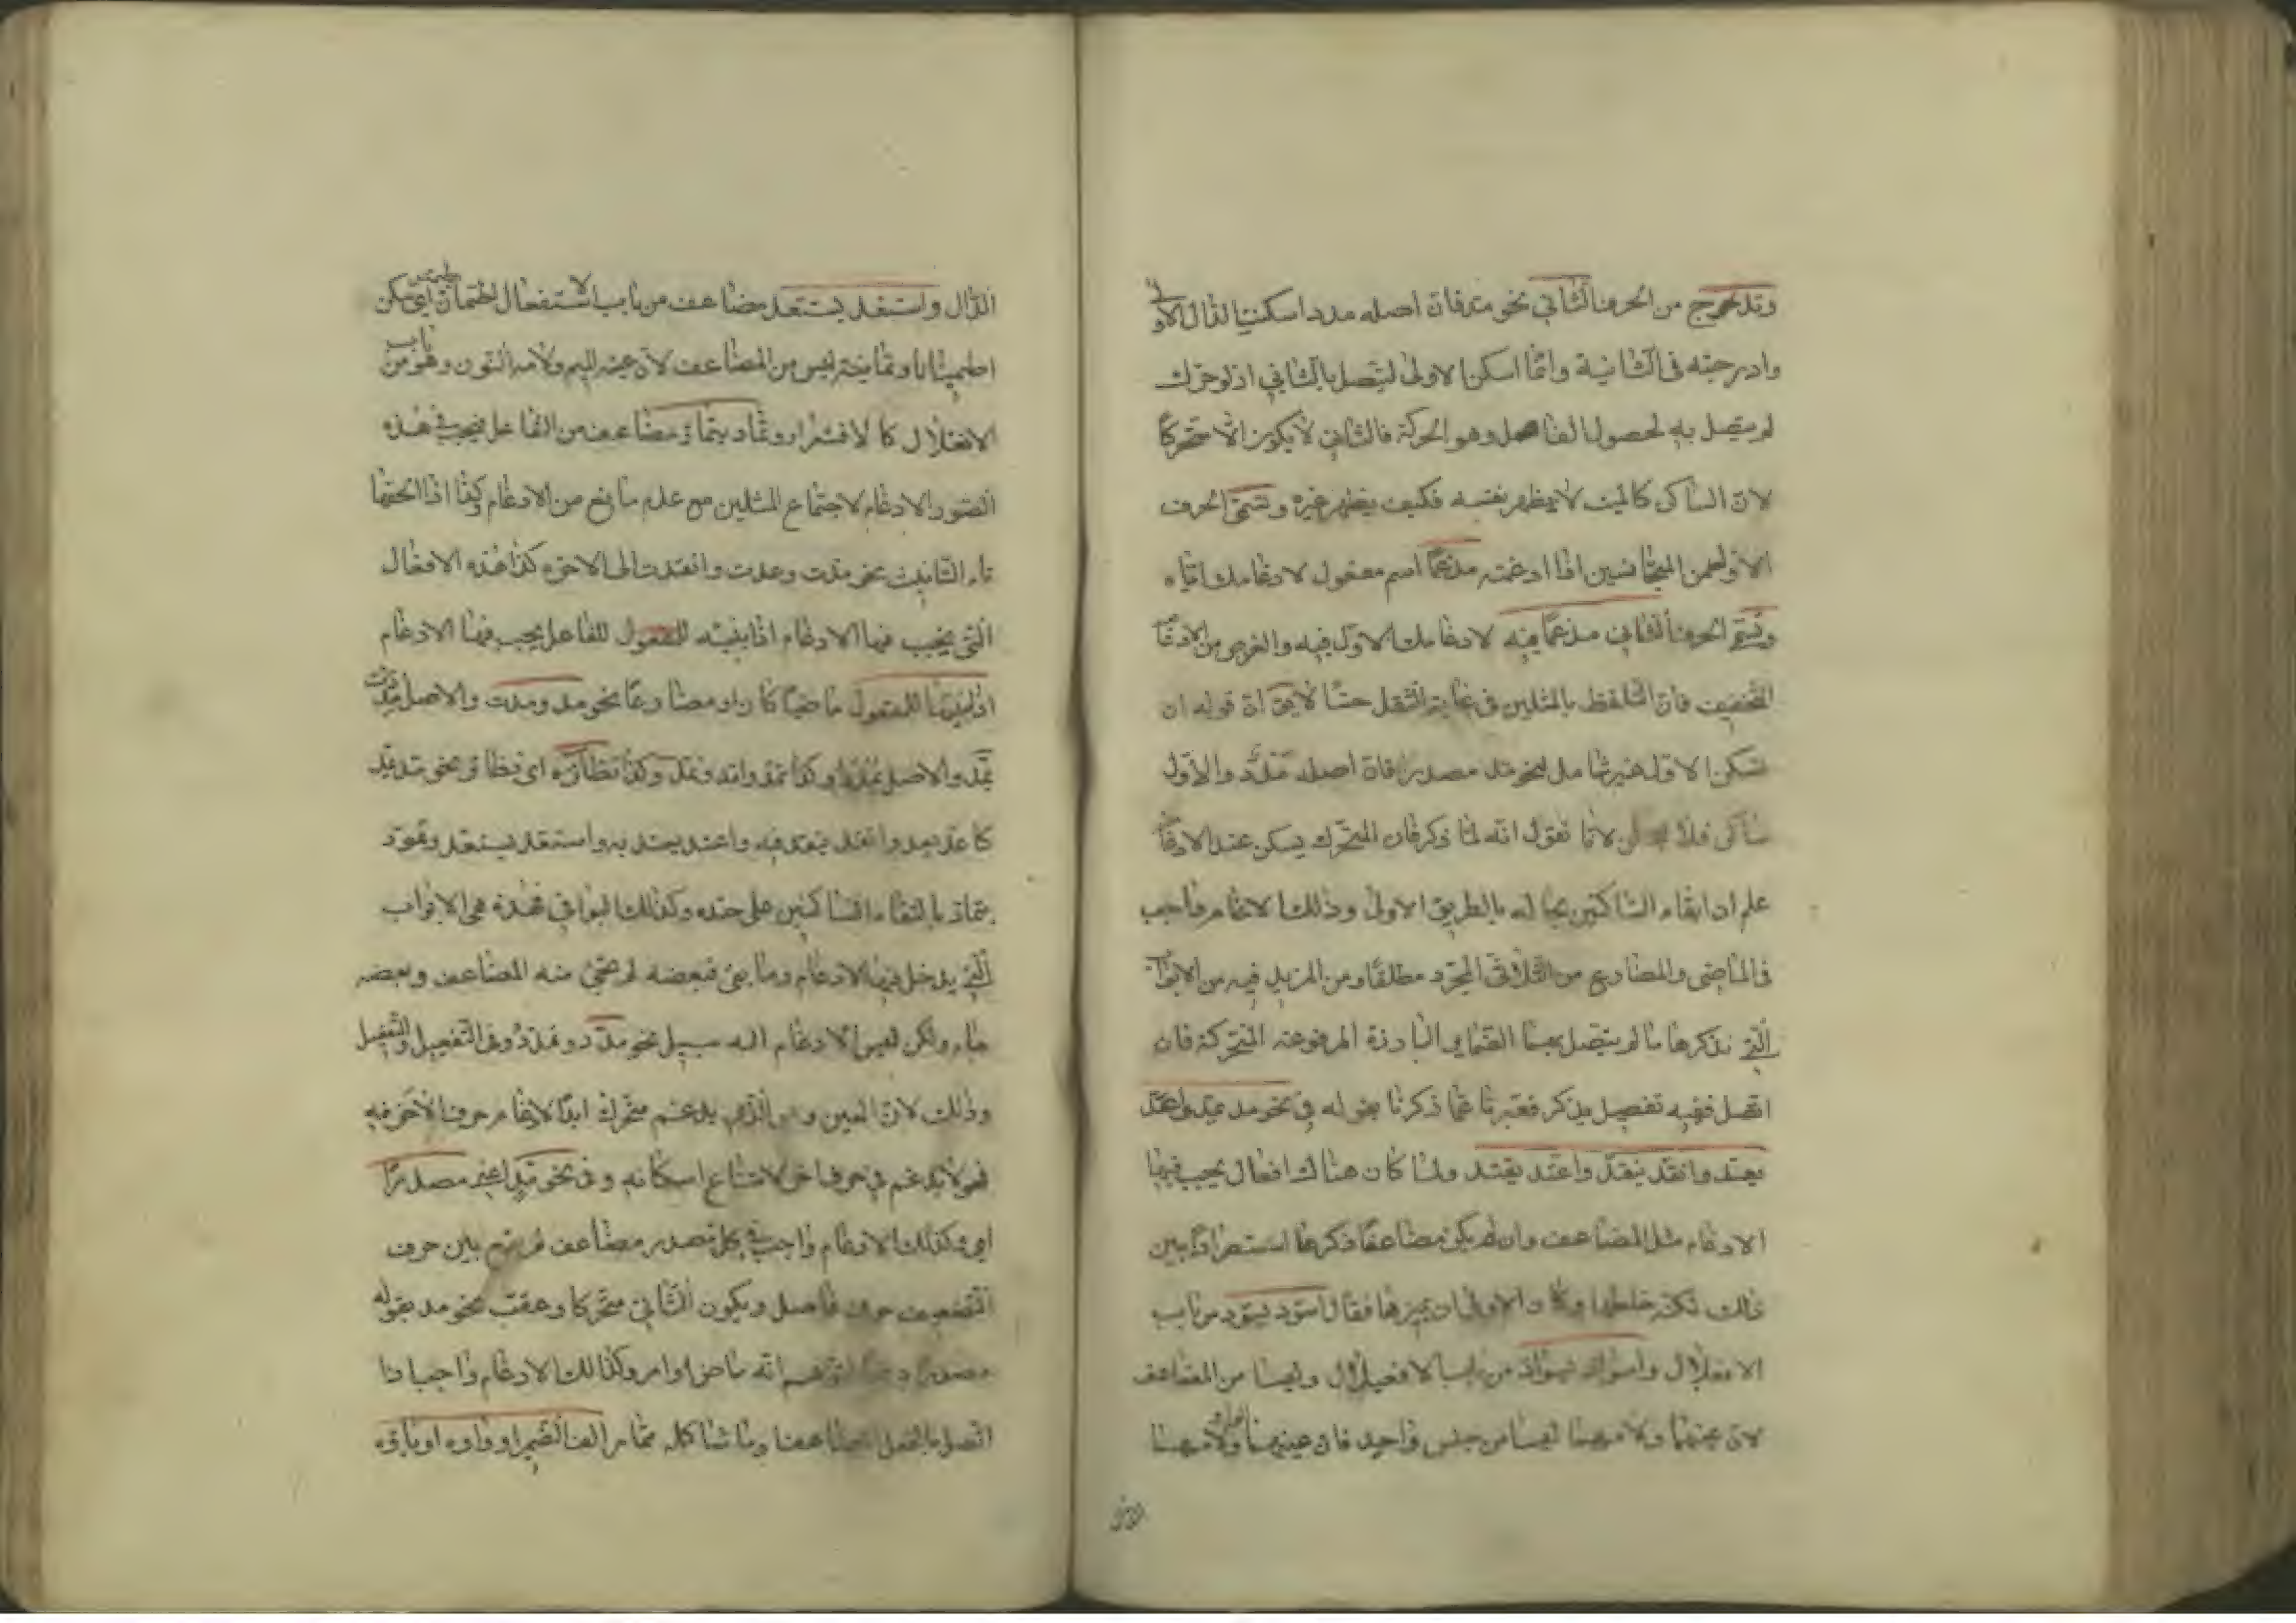 وتدرج من الحرف الثاني نحو مد فان اصله مدد اسكنت الدال الاولى
وادرجته فى الثانية وانما اسكن الاولى ليتصل بالثاني اذ لو حرك
لم يتصل به لحصول الفاصل وهو الحركة فالثاني لا يكون الا متحركا
لان الساكن كالميت لا يظهر نفسه فكيف يظهر غيره وتسمى الحرف
الاول من المتجانسين اذا ادغمته مدغما اسم مفعول لادغامك اياه
وتسمى الحرف الثاني مدغما فيه لادغامك الاول فيه والغرض من الادغام
التخفيف فان التلفظ بالمثلين فى غاية الثقل حسا لا يق ان قوله ان
تسكن الاول غير شامل لنحو مد مصدرا فان اصله مَدْدٌ والاول
ساكن فلا لانا نقول انه لما ذكر ان المتحرك يسكن عند الادغام
علم ان ابقاء الساكن بحاله بالطريق الاولى وذلك الادغام واجب
فى الماضى والمضارع من الثلاثى المجرد مطلقا ومن المزيد فيه من الابواب
التي نذكرها ما لم يتصل بهما الضماير البارزة المرفوعة المتحركة فان
اتصل ففيه تفصيل يذكر فعبرنا عما ذكرنا بقوله في نحو مد يمد واعد
يعد وانقد ينقد واعتد يعتد ولما كان هناك افعال يجب فيها
الادغام مثل المضاعف وان لم يكن مضاعفا ذكرها استطرادا بين
ذلك لكنه خلطها وكان الاولى ان يميزها فقال اسود يسود من باب
الافعلال واسواد يسواد من باب الافعيلال وليسا من المضاعف
لان عينهما ولامهما ليسا من جنس واحد فان عينهما الواو ولامهما
الدال واستعد يستعد مضاعف من باب الاستفعال اطمأن اي سكن
اطمينانا وطمانينة ليس من المضاعف لان عينه الميم ولامه النون وهو من باب
الافعلال كالاقشعرار وتماد يتماد مضاعف من التفاعل فيجب فى هذه
الصور الادغام لاجتماع المثلين مع عدم مانع من الادغام وكذا اذا الحقها
تاء التانيث نحو مدت وعدت وانقدت الى الاخره كذا هذه الافعال
التى يجب فيها الادغام اذا بنيته للفاعل يجب فيها الادغام
اذا بنيتها للمفعول ماضيا كان او مضارعا نحو مد ومدت والاصل مدد
يمد والاصل يمدد وكذا تمد وامد ونمد وكذا نظائره اى نظائر نحو مد يمد
كاعد يعد وانقد ينقد فيه واعتد يعتد به واستعد يستعد وتمود
يتماد بالتقاء الساكنين على حده وكذلك البواقي فهذه هى الابواب
التي يدخل فيها الادغام وما بقى فبعضه لم يجئ منه المضاعف وبعضه
جاء ولكن ليس للادغام اليه سبيل نحو مدد وتمدد وفى التفعيل والتفعل
وذلك لان العين وهو الذي يدغم متحرك ابدا لادغام حرف الآخر فيه
فهو لا يدغم في حرف اخر لامتناع اسكانه وفى نحو مد اعنى مصدرا
اى وكذلك الادغام واجب في كل مصدر مضاعف لم يقع بين حرفى
التضعيف حرف فاصل ويكون الثانى متحركا وعقب نحو مد بقوله
مصدرا انه ماض او امر وكذلك الادغام واجب اذا
اتصل بالفعل المضاعف وما شاكله مما مر الف الضمير او واوه او ياؤه